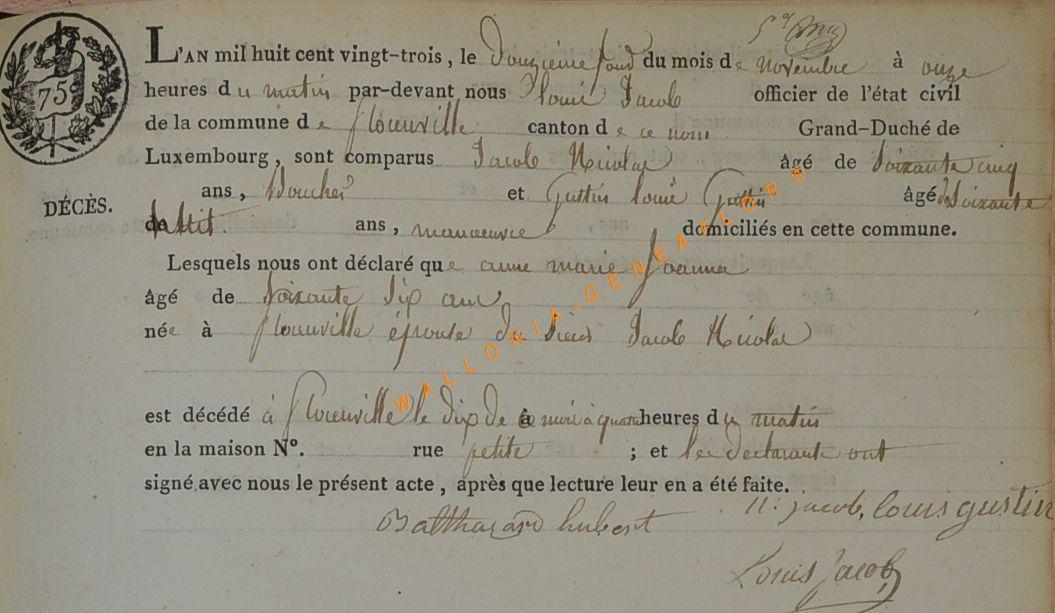 75
L'AN mil huit cent vingt-trois, le Douzieme jour du mois de novembre à onze
heures du matin par-devant nous louis Jacob officier de l'état civil
de la commune de florenville canton de ce nom Grand-Duché de
Luxembourg, sont comparus Jacob Nicolas âgé de soixante cinq
ans, Boucher et Gustin louis Gustin âgé de soixante
DÉCÈS.
de ans, manoeuvre domiciliés en cette commune.
Lesquels nous ont déclaré que anne marie
âgé de soixante dix ans
née à florenville épouse du sieur Jacob Nicolas
est décédé à florenville le dix de ce mois à quatre heures du matin
en la maison N°. rue petite ; et les declarants ont
signé avec nous le présent acte, après que lecture leur en a été faite.
Balthazard hubert n: jacob, louis gustin
Louis Jacob
WALLONIA-GENEAFLORE